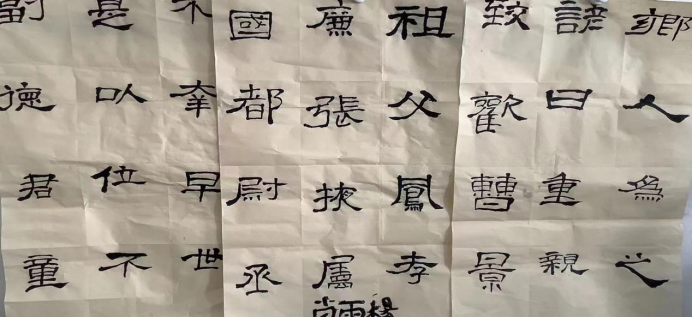 鄉人爲之
諺曰重親
致歡曹景
祖父鳳孝
廉張掖屬
國都尉丞
不幸早世
是以位不
副德君童